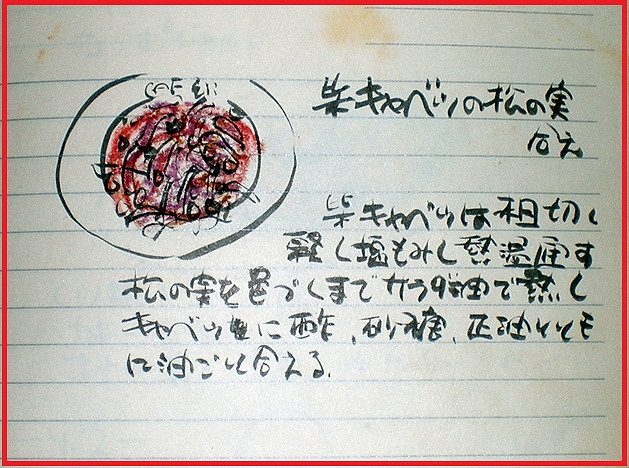 柴キャベツの松の実
合え
柴キャベツは粗切し
軽し塩もみし
松の実を色づくまでサラダ油で熱し
キャベツに酢、砂糖、正油とも
に油ごと合える。